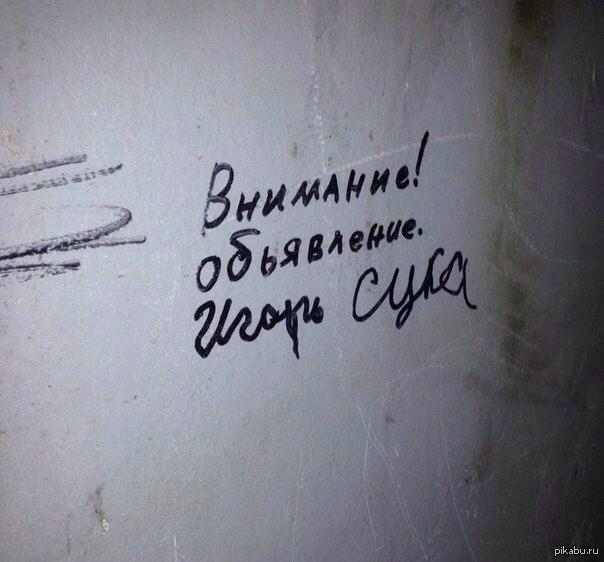 Внимание!
обьявление.
Игорь сука
pikabu.ru